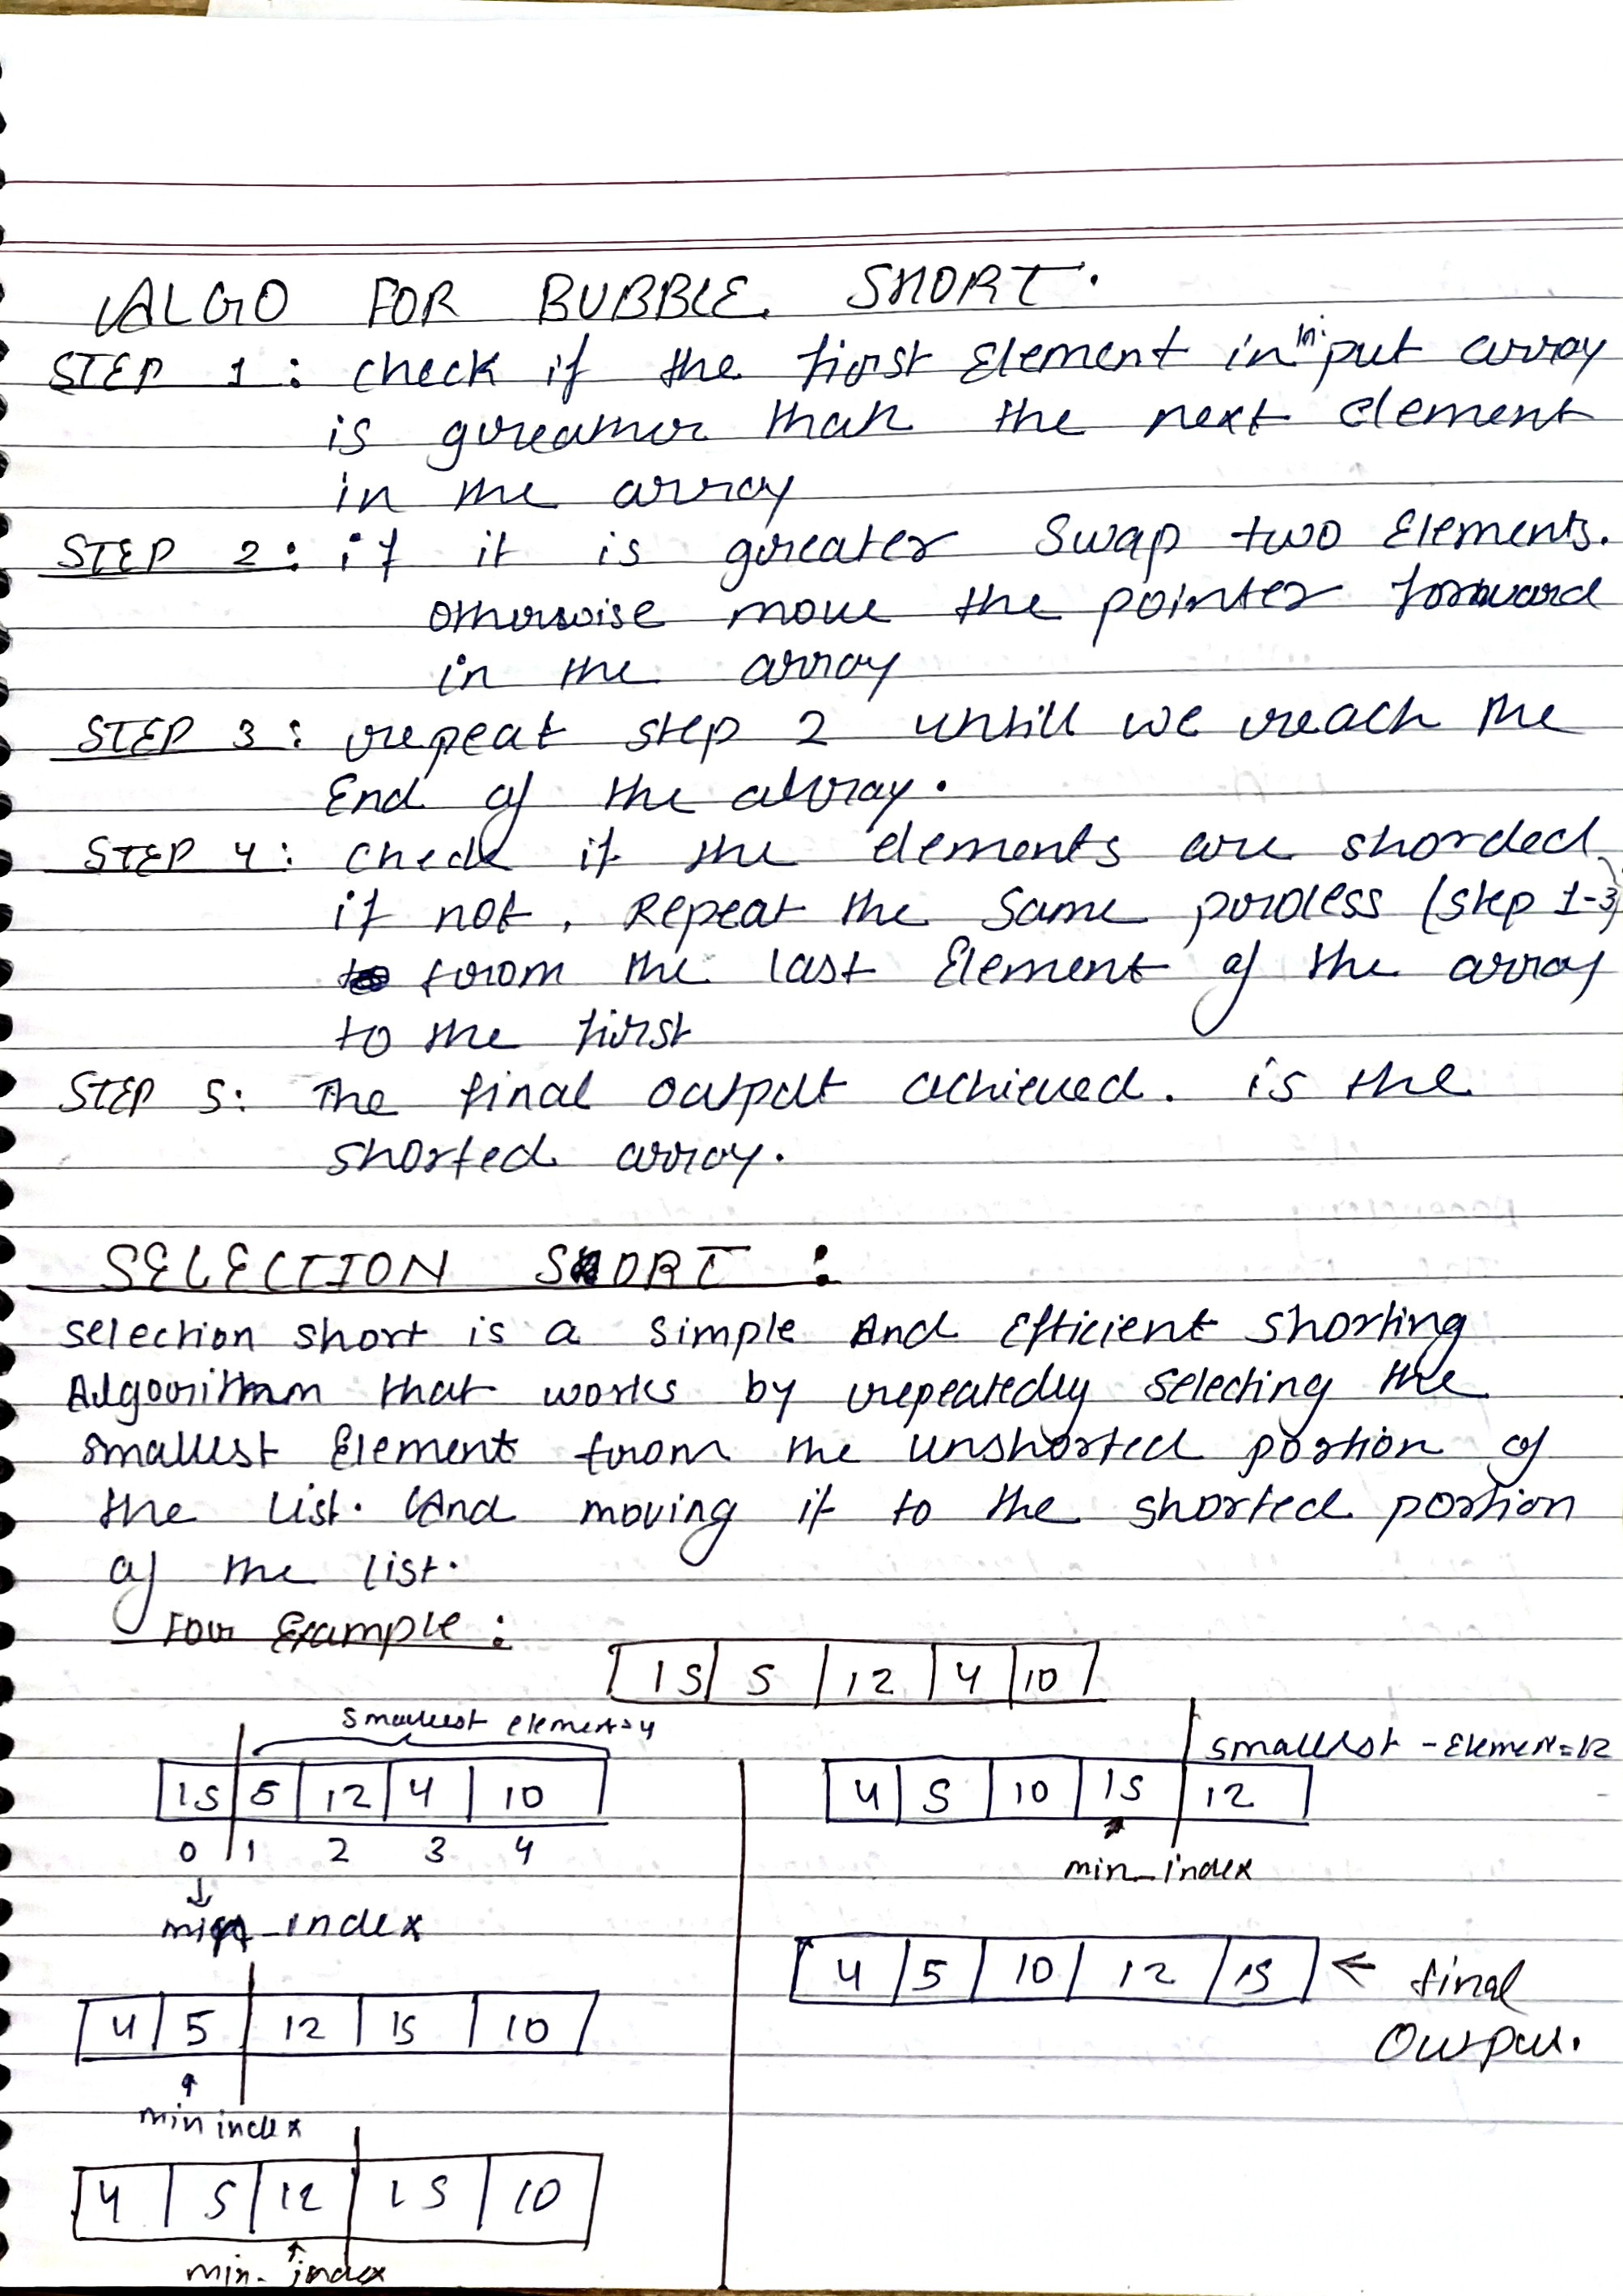 ALGO FOR BUBBLE SHORT.
STEP 1: check if the first Element in in put array
is greamer than the next element
in the array
STEP 2: if it is greater Swap two Elements.
otherwise move the pointer forward
in the array
STEP 3: repeat step 2 untill we reach the
End of the array.
STEP 4: check if the elements are shorded
if not, Repeat the same process (step 1-3)
from the last Element of the array
to the first
STEP 5: The final output achieved. is the
shorted array.
SELECTION SORT :
selection short is a simple And Efficient shorting
Algorithm that works by repeatedly selecting the
smallest Element from the unshorted portion of
the list. And moving it to the shorted portion
of the list.
For Example :
15 5 12 4 10
smallest element=4
15 5 12 4 10
0 1 2 3 4
min_index
4 5 12 15 10
min index
4 5 12 15 10
min_index
smallest-Element=12
4 5 10 15 12
min_index
4 5 10 12 15 ← final
Output.